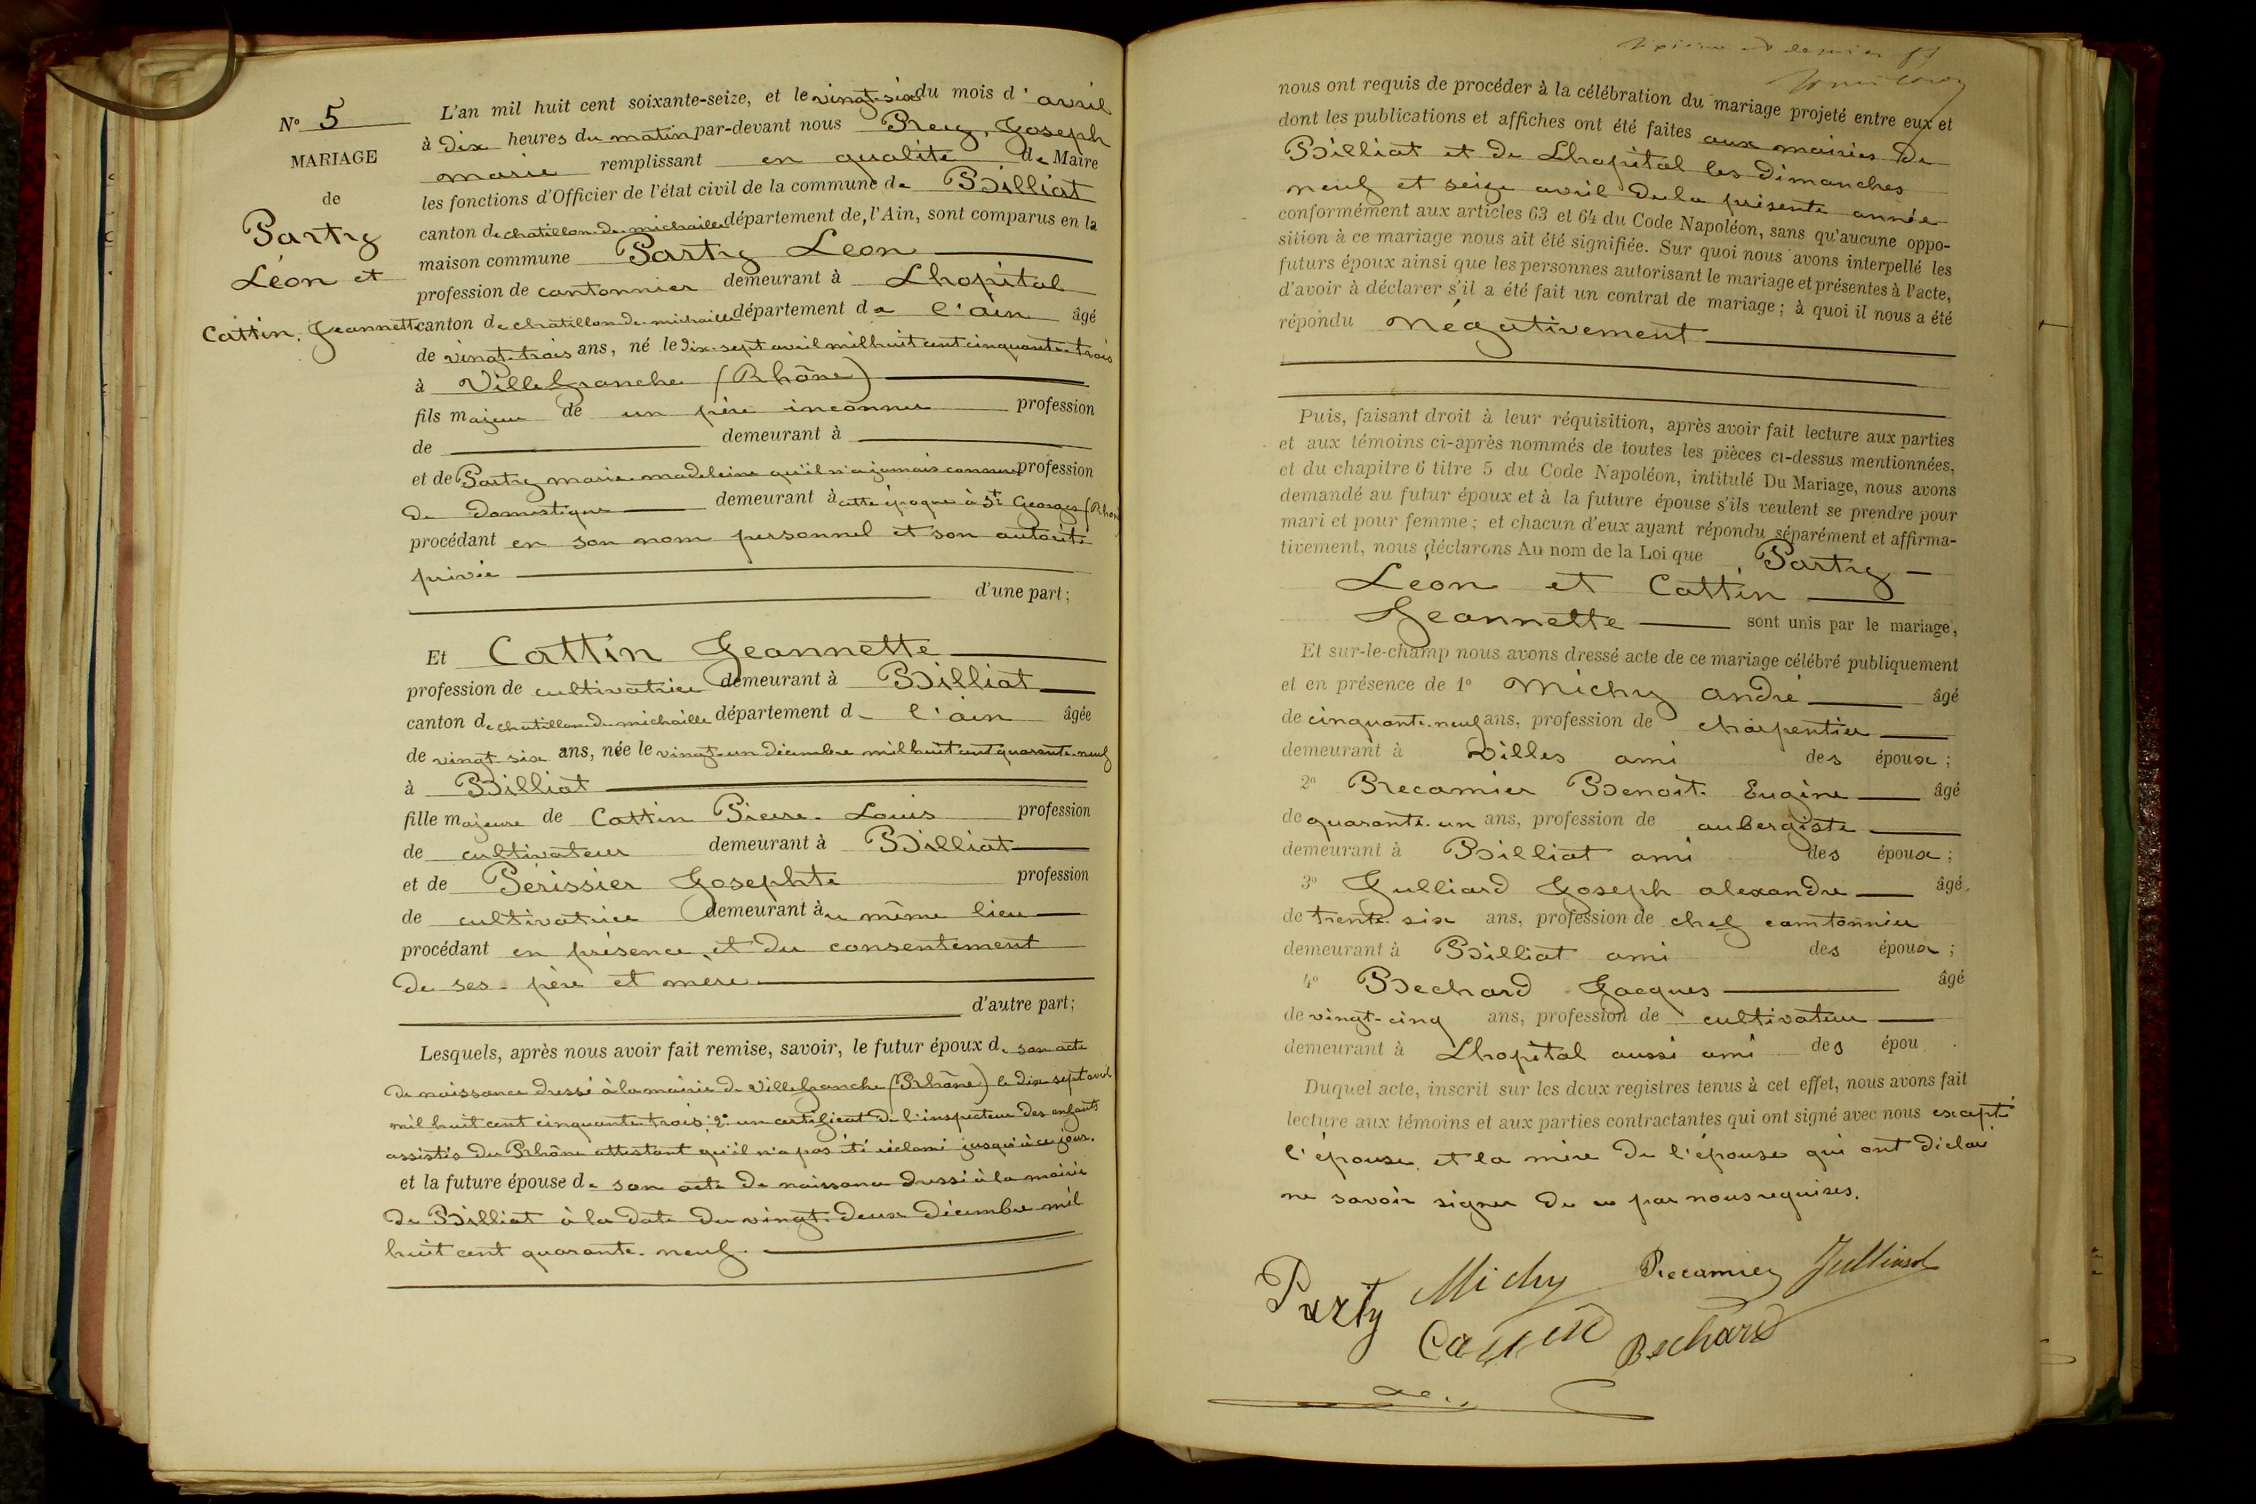 N° 5
MARIAGE
de
Partry
Léon et
Cattin. Jeannette
L'an mil huit cent soixante-seize, et le vingt-six du mois d'avril
à dix heures du matin par-devant nous Preig, Joseph
marie remplissant en qualité de Maire
les fonctions d'Officier de l'état civil de la commune de Billiat
canton de chatillon-de-michaille département de l'Ain, sont comparus en la
maison commune Partry Leon
profession de cantonnier demeurant à Lhopital
canton de chatillon-de-michaille département de l'ain âgé
de vingt-trois ans, né le dix-sept avril mil huit cent cinquante-trois
à Villefranche (Rhône)
fils majeur de un père inconnu profession
de demeurant à
et de Partry marie-madeleine qu'il n'a jamais connue profession
de domestique demeurant à cette époque à St Georges (Rhône
procédant en son nom personnel et son autorité
privée
d'une part;
Et Cattin Jeannette
profession de cultivatrice demeurant à Billiat
canton de chatillon de michaille département de l'ain âgée
de vingt-six ans, née le vingt-un décembre mil huit cent quarante-neuf
à Billiat
fille majeure de Cattin Pierre-Louis profession
de cultivateur demeurant à Billiat
et de Périssier Josephte profession
de cultivatrice demeurant au même lieu
procédant en présence, et du consentement
de ses père et mère
d'autre part;
Lesquels, après nous avoir fait remise, savoir, le futur époux de son acte
de naissance dressé à la mairie de Villefranche (Rhône) le dix sept avril
mil huit cent cinquante trois; 2° un certificat de l'inspecteur des enfants
assistés du Rhône attestant qu'il n'a pas été réclamé jusqu'à ce jour.
et la future épouse de son acte de naissance dressé à la mairie
de Billiat à la date du vingt-deux décembre mil
huit cent quarante-neuf.
nous ont requis de procéder à la célébration du mariage projeté entre eux et
dont les publications et affiches ont été faites aux mairies de
Billiat et de Lhopital les dimanches
neuf et seize avril de la présente année
conformément aux articles 63 et 64 du Code Napoléon, sans qu'aucune oppo-
sition à ce mariage nous ait été signifiée. Sur quoi nous avons interpellé les
futurs époux ainsi que les personnes autorisant le mariage et présentes à l'acte,
d'avoir à déclarer s'il a été fait un contrat de mariage; à quoi il nous a été
répondu négativement
Puis, faisant droit à leur réquisition, après avoir fait lecture aux parties
et aux témoins ci-après nommés de toutes les pièces ci-dessus mentionnées,
et du chapitre 6 titre 5 du Code Napoléon, intitulé Du Mariage, nous avons
demandé au futur époux et à la future épouse s'ils veulent se prendre pour
mari et pour femme; et chacun d'eux ayant répondu séparément et affirma-
tivement, nous déclarons Au nom de la Loi que Partry
Leon et Cattin
Jeannette sont unis par le mariage,
Et sur-le-champ nous avons dressé acte de ce mariage célébré publiquement
et en présence de 1° Michy andré âgé
de cinquante-neuf ans, profession de charpentier
demeurant à Villes ami des époux;
2° Recamier Benoit Eugène âgé
de quarante-un ans, profession de aubergiste
demeurant à Billiat ami des époux;
3° Julliard Joseph alexandre âgé
de trente-six ans, profession de chef camtonnier
demeurant à Billiat ami des époux;
4° Bechard Jacques âgé
de vingt-cinq ans, profession de cultivateur
demeurant à Lhopital aussi ami des épou
Duquel acte, inscrit sur les deux registres tenus à cet effet, nous avons fait
lecture aux témoins et aux parties contractantes qui ont signé avec nous excepté
l'épouse, et la mère de l'épouse qui ont déclaré
ne savoir signer de ce par nous requises.
Party Michy Recamier Julliard
Cattin Bechard